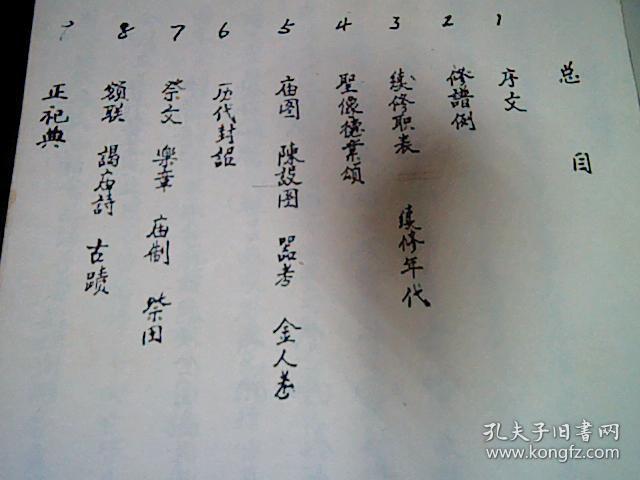 总 目
1 序文
2 修譜例
3 续修职表 续修年代
4 聖像德業頌
5 庙图 陳設图 器考 金人表
6 历代封诏
7 祭文 樂章 庙制 柴田
8 額联 謁庙詩 古蹟
正祀典
孔夫子旧书网
www.kongfz.com